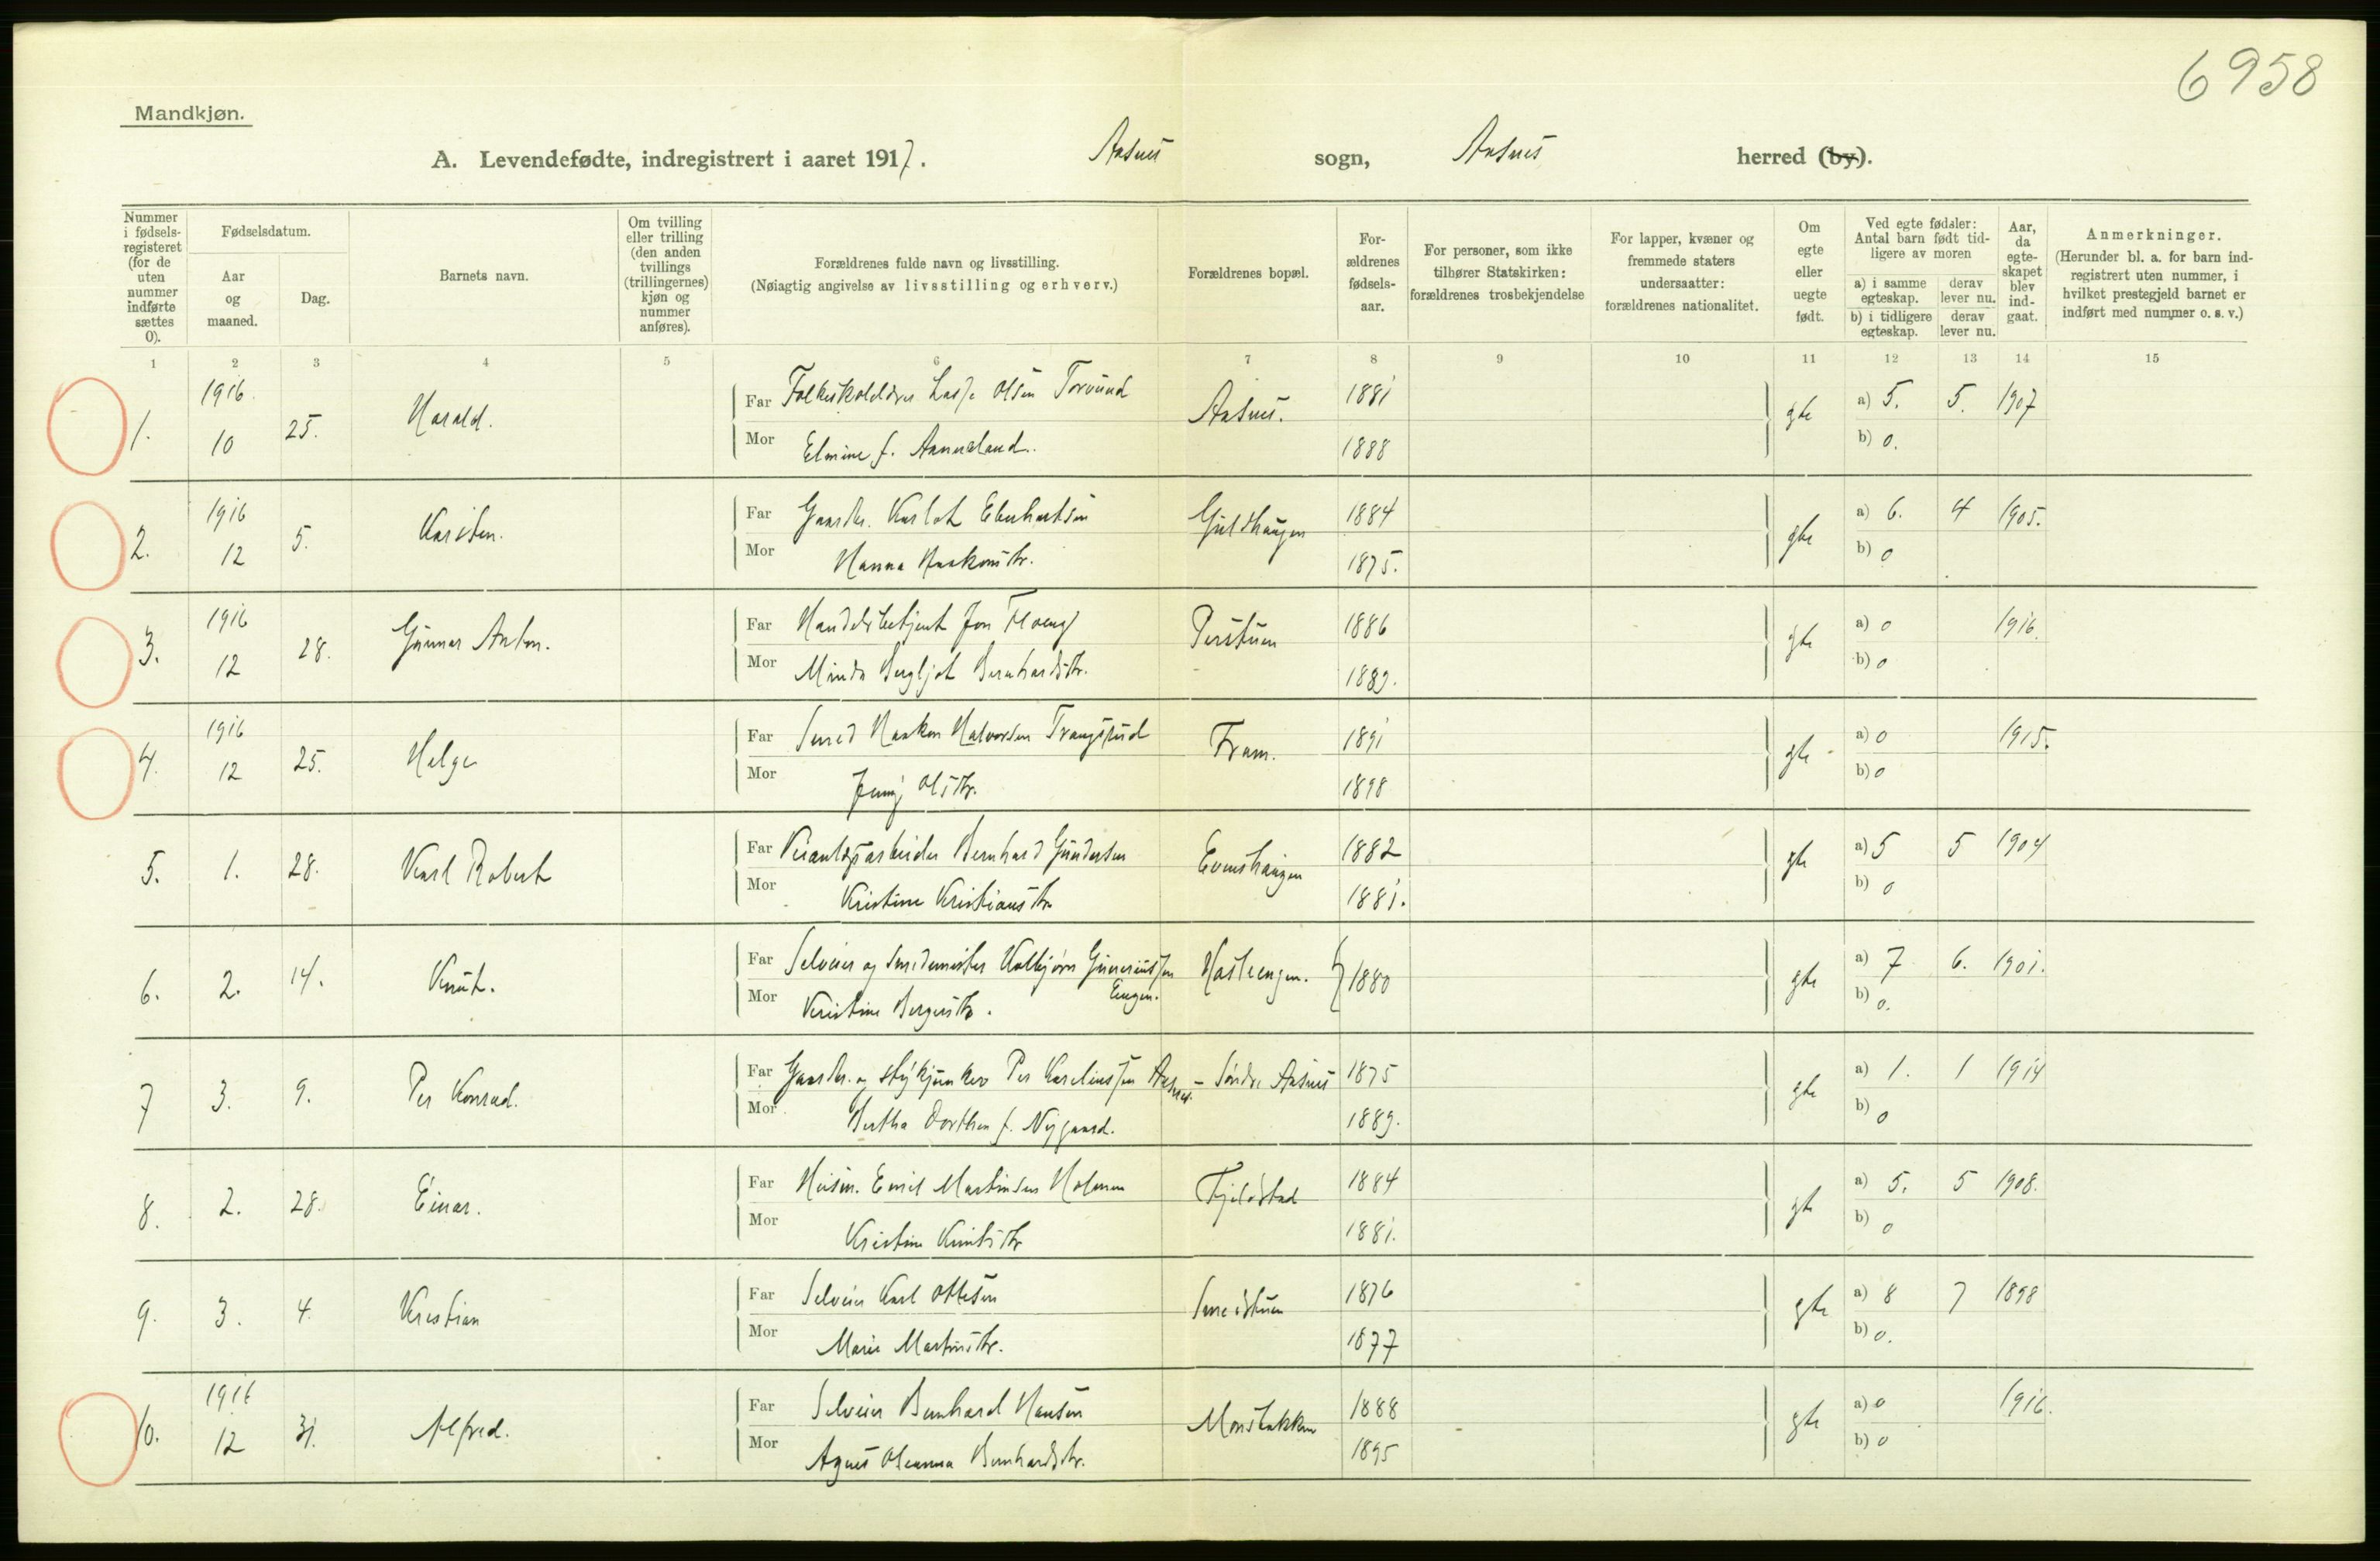 6958
Mandkjøn.
A. Levendefødte, indregistrert i aaret 1917. Aasnes sogn, Aasnes herred (by).
Nummer i fødsels-registeret (for de uten nummer indførte sættes 0).
Fødselsdatum.
Aar og maaned.
Dag.
Barnets navn.
Om tvilling eller trilling (den anden tvillings (trillingernes) kjøn og nummer anføres).
Forældrenes fulde navn og livsstilling.
(Nøiagtig angivelse av livsstilling og erhverv.)
Forældrenes bopæl.
For-ældrenes fødsels-aar.
For personer, som ikke tilhører Statskirken: forældrenes trosbekjendelse
For lapper, kvæner og fremmede staters undersaatter: forældrenes nationalitet.
Om egte eller uegte født.
Ved egte fødsler: Antal barn født tid-ligere av moren
a) i samme egteskap.
derav lever nu.
b) i tidligere egteskap.
derav lever nu.
Aar, da egte-skapet blev ind-gaat.
Anmerkninger.
(Herunder bl. a. for barn ind-registrert uten nummer, i hvilket prestegjeld barnet er indført med nummer o. s. v.)
1 2 3 4 5 6 7 8 9 10 11 12 13 14 15
1. 1916. 10 25. Harald. Far Folkeskolelærer Lasse Olsen Aasnes. 1881 gte a) 5. 5. 1907
Mor Elmine f. Aanneland. 1888 b) 0.
2. 1916 12 5. Karsten. Far Gaardbr. Karlot Eberhartsen Guldhaugen 1884 gte a) 6. 4 1905.
Mor Hanna Haakonsdtr. 1875. b) 0
3. 1916 12 28. Gunnar Anton. Far Handelsbetjent Jon Perstuen 1886 gte a) 0 1916.
Mor Minda Bergljot Bernhardsdtr. 1889. b) 0
4. 1916 12 25. Helge Far Smed Haakon Halvorsen Trangsrud Fram. 1891 gte a) 0 1915.
Mor Jenny Olsdtr. 1898 b) 0
5. 1. 28. Karl Robert Far Veianlægsarbeider Bernhard Gundersen Evenshaugen 1882 gte a) 5 5 1904
Mor Kristine Kristiansdtr. 1881. b) 0
6. 2. 14. Knut. Far Selveier og smedmester Kolbjørn Guneriussen Engen. 1880 gte a) 7 6. 1901.
Mor Kristine Bergersdtr. b) 0.
7 3. 9. Per Konrad. Far Gaardbr. og Per Kareliussen Aasnes. – Søndre Aasnes 1875 gte a) 1. 1 1914
Mor Bertha Dorthea f. Nygaard. 1889. b) 0
8. 2. 28. Einar. Far Husm. Emil Martinsen Holmen Fjeldstad 1884 gte a) 5. 5 1908.
Mor Kristine Knutsdtr. 1881. b) 0
9. 3. 4. Kristian Far Selveier Karl Ottesen Smedstuen 1876 gte a) 8 7 1898
Mor Marie Martinsdtr. 1877 b) 0.
10. 1916 12 31. Alfred. Far Selveier Bernhard Hansen Monsbakken 1888 gte a) 0 1916.
Mor Agnes Oleanna Bernhardsdtr. 1895 b) 0